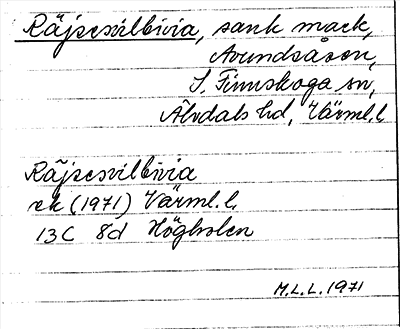 Räjsesvilbivia, sank mack,
Avundsåsen,
S. Finnskoga sn,
Älvdals hd, Värml. l.
Räjsesvilbivia
ek (1971) Värml. l.
13C 8d Högholen
M.L.L. 1971